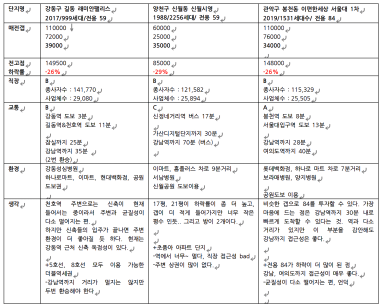 단지명
강동구 길동 래미안팰리스
2017/999세대/전용 59
양천구 신월동 신월시영
1988/2256세대/ 전용 59
관악구 봉천동 이편한세상 서울대 1차
2019/1531세대수/ 전용 84
매전갭
110000
72000
39000
60000
25000
35000
110000
76000
34000
전고점
하락률
149500
-26%
85000
-29%
148000
-26%
직장
B
종사자수 : 141,770
사업체수 : 29,080
B
종사자수 : 121,582
사업체수 : 25,894
B
종사자수 : 115,329
사업체수 : 25,505
교통
B
강동역 도보 3분
길동역&천호역 도보 11분
잠실까지 25분
강남역까지 35분
(2번 환승)
C
신정네거리역 버스 17분
가산디지털단지까지 30분
강남역까지 70분 (버스)
A
봉천역 도보 8분
서울대입구역 도보 13분
강남역까지 28분
여의도역까지 40분
환경
강동성심병원
하나로마트, 이마트, 현대백화점, 공원
도보권
이마트, 홈플러스 차로 9분거리
서남병원
신월공원 도보이용
롯데백화점, 하나로 마트 차로 7분거리
보라매병원, 양지병원
공원도보 이용
생각
천호역 주변으로는 신축이 현재
들어서는 중이라서 주변과 균질성이
다소 떨어지는 편.
하지만 신축들의 입주가 끝나면 주변
환경이 더 좋아질 듯 하다. 현재는
강동역 근처 신축 독점성이 있다.
+5호선, 8호선 모두 이용 가능한
더블역세권
-강남역까지 거리가 멀지는 않지만
두번 환승해야 한다
17평, 21평이 하락률이 좀 더 높고,
갭이 더 적게 들어가지만 너무 작은
평수 인듯.. 그리고 방이 2개이다.
+초품아 아파트 단지
-역에서 너무~ 멀다, 직장 접근성 bad
-주변 상권이 많이 없다.
비슷한 갭으로 84를 투자할 수 있다. 가장
마음에 드는 점은 강남역까지 30분 내로
빠르게 도착할 수 있다는 것. 역과 다소
거리가 있지만 이 부분을 감안해도
강남까지 접근성은 좋다.
+전용 84가 하락이 더 많이 된 점
강남, 여의도까지 접근성이 매우 좋다.
-균질성이 다소 떨어지는 편, 언덕